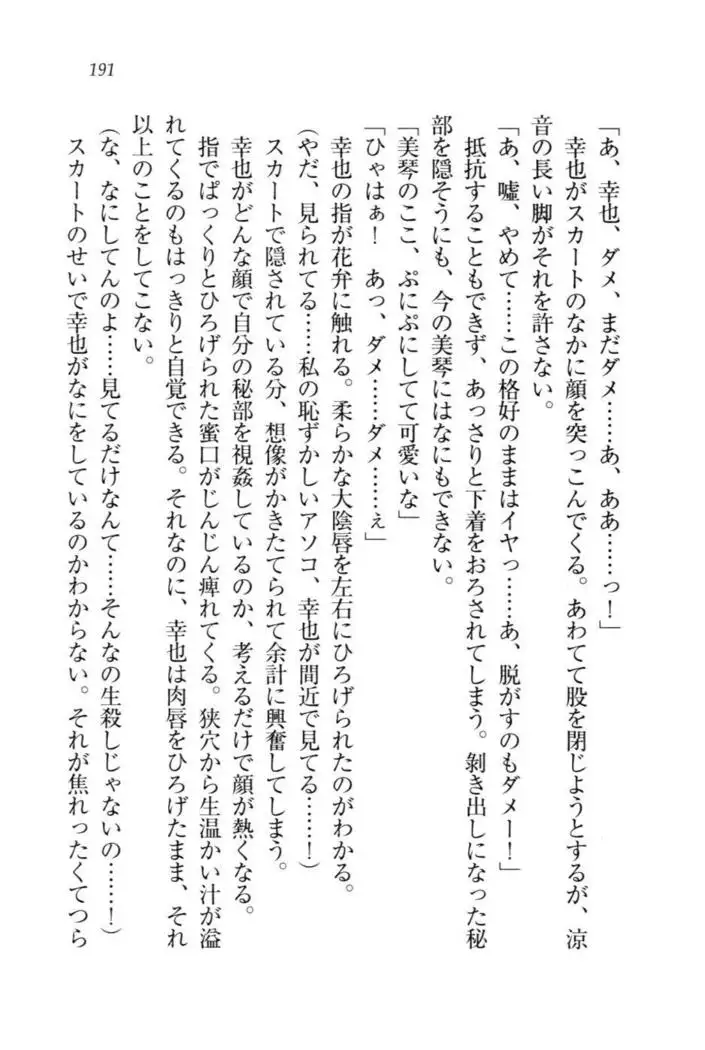 191
「あ、幸也、ダメ、まだダメ……あ、ああ……っ！」
幸也がスカートのなかに顔を突っこんでくる。あわてて股を閉じようとするが、涼
音の長い脚がそれを許さない。
「あ、嘘、やめて……この格好のままはイヤっ……あ、脱がすのもダメー！」
抵抗することもできず、あっさりと下着をおろされてしまう。剝き出しになった秘
部を隠そうにも、今の美琴にはなにもできない。
「美琴のここ、ぷにぷにしてて可愛いな」
「ひゃはぁ！　あっ、ダメ……ダメ……ぇ」
幸也の指が花弁に触れる。柔らかな大陰唇を左右にひろげられたのがわかる。
（やだ、見られてる……私の恥ずかしいアソコ、幸也が間近で見てる……！）
スカートで隠されている分、想像がかきたてられて余計に興奮してしまう。
幸也がどんな顔で自分の秘部を視姦しているのか、考えるだけで顔が熱くなる。
指でぱっくりとひろげられた蜜口がじんじん痺れてくる。狭穴から生温かい汁が溢
れてくるのもはっきりと自覚できる。それなのに、幸也は肉唇をひろげたまま、それ
以上のことをしてこない。
（な、なにしてんのよ……見てるだけなんて……そんなの生殺しじゃないの……！）
スカートのせいで幸也がなにをしているのかわからない。それが焦れったくてつら